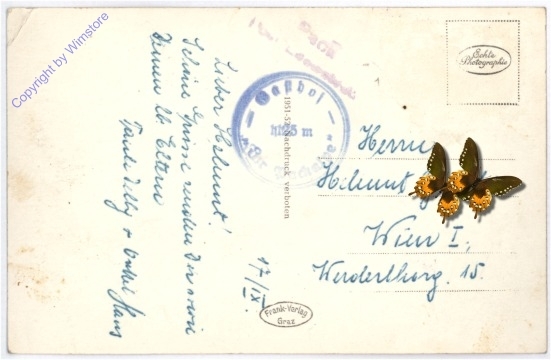 Copyright by Wimstore
Lieber Helmut!
Schöne Grüsse senden dir und
Deinen lb. Eltern
Tante Willy + Onkel Hans
17/IX.
Gasthof
1125 m
1951-52 Nachdruck verboten
Frank-Verlag
Graz
Echte
Photographie
Herrn
Helmut
Wien I,
Werdertborg. 15.